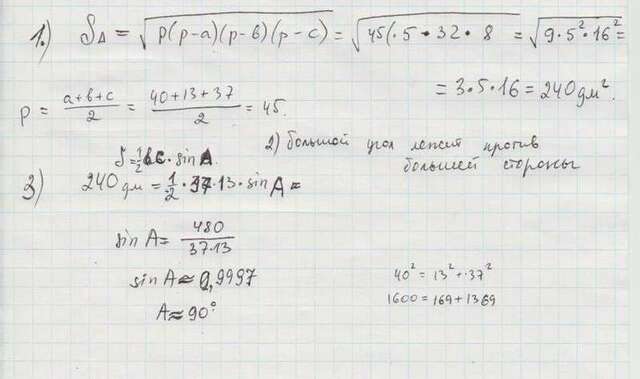 1.) S△ = √(p(p-a)(p-b)(p-c)) = √(45(·5·32·8 = √(9·5²·16²) =
= 3·5·16 = 240 дм².
p = (a+b+c)/2 = (40+13+37)/2 = 45.
2) большой угол лежит против
большей стороны
S=½bc·sinA.
3) 240 дм = ½·37·13·sin A =
sin A = 480/(37·13)
sin A ≈ 0,9997
A ≈ 90°
40² = 13² + 37²
1600 = 169 + 1369